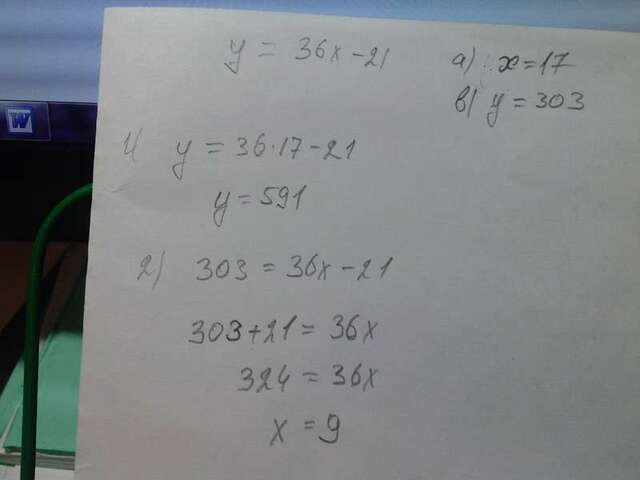 y = 36x - 21
а) x = 17
в) y = 303
1) y = 36·17 - 21
y = 591
2) 303 = 36x - 21
303 + 21 = 36x
324 = 36x
x = 9
W